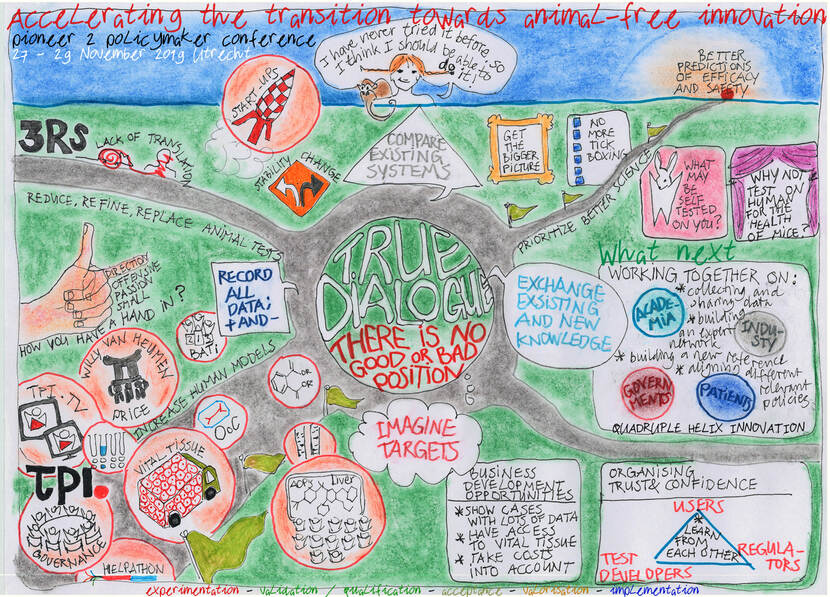 Accelerating the transition towards animal-free innovation
pioneer 2 policymaker conference
27 - 29 November 2019 Utrecht
I have never tried it before so
I think I should be able to
do it!
BETTER
PREDICTIONS
OF EFFICACY
AND SAFETY
START-UPS
3Rs
LACK OF TRANSLATION
STABILITY CHANGE
COMPARE
EXISTING
SYSTEMS
GET
THE
BIGGER
PICTURE
NO
MORE
TICK
BOXING
PRIORITIZE BETTER SCIENCE
WHAT
MAY
BE
SELF
TESTED
ON YOU?
WHY NOT
TEST ON
HUMAN
FOR THE
HEALTH
OF MICE?
REDUCE, REFINE, REPLACE ANIMAL TESTS
DIRECTION
OFFENSIVE
PASSION
SMALL
HOW YOU HAVE A HAND IN?
RECORD
ALL
DATA;
+ AND -
TRUE
DIALOGUE
THERE IS NO
GOOD OR BAD
POSITION
EXCHANGE
EXSISTING
AND NEW
KNOWLEDGE
What next
WORKING TOGETHER ON:
* collecting and
sharing data
* building
an expert
network
* building a new reference
* aligning different
relevant
policies
ACADE-
MIA
INDU-
STY
GOVERN
MENTS
PATIENTS
QUADRUPLE HELIX INNOVATION
WILLY VAN HEUMEN
PRICE
BATI
INCREASE HUMAN MODELS
TPI.TV
OoC
OR
OR
VITAL TISSUE
IMAGINE
TARGETS
tpi.
GOVERNANCE
HELPATHON
AOPs Liver
BUSINESS
DEVELOPMENT
OPPORTUNITIES
* SHOW CASES
WITH LOTS OF DATA
* HAVE ACCESS
TO VITAL TISSUE
* TAKE COSTS
INTO ACCOUNT
ORGANISING
TRUST & CONFIDENCE
USERS
* LEARN
FROM
EACH OTHER
TEST
DEVELOPERS
REGULA-
TORS
experimentation - validation / qualification - acceptance - valorisation - implementation